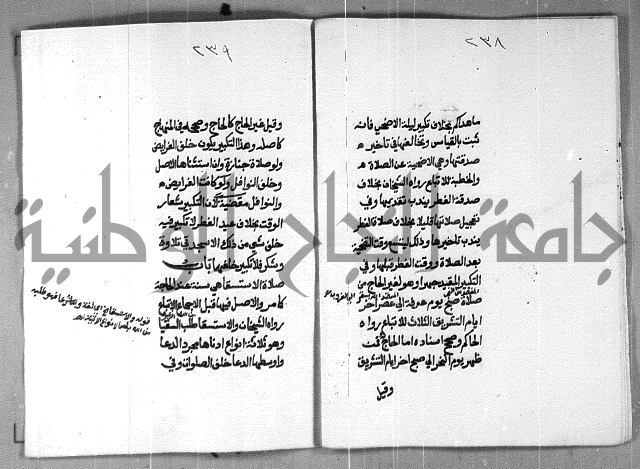 ٢٣٨
ماهداكم بخلاف تكبير ليلة الاضحى فانه
ثبت بالقياس وتخالفها في تاخير
صدقتها وهي الاضحية عن الصلاة
والخطبة للاتباع رواه الشيخان بخلاف
صدقة الفطر يندب تقديمها وفي
تعجيل صلاتها قليلا بخلاف صلاة الفطر
يندب تاخيرها وذلك ليتسع وقت التضحية
بعد الصلاة ووقت الفطر قبلها وفي
التكبير المقيد جهرا وهو لغير الحاج من
صلاة صبح يوم عرفة الى عصر اخر
ايام التشريق الثلاث للاتباع رواه
الحاكم وصحح اسناده اما الحاج فمن
ظهر يوم النحر الى صبح اخر ايام التشريق
وقيل
٢٣٩
وقيل غير الحاج كالحاج وصححه في المنهاج
كاصله وهذا التكبير يكون خلف الفرايض
ولو صلاة جنازة وان استثناها الاصل
وخلف النوافل ولو كانت الفرايض
والنوافل مقضية لان التكبير شعار
الوقت بخلاف عيد الفطر لا تكبير فيه
خلف شي من ذلك الا سجدتي تلاوة
وشكر فلا تكبير خلفهما باب
صلاة الاستسقا هي سنة عند الحاجة
كما مر والاصل فيها قبل الاجماع الاتباع
رواه الشيخان والاستسقا طلب السقيا
وهو ثلاثة انواع ادناها مجرد الدعا
واوسطها الدعا خلف الصلوات وفي
جامعة النجاح الوطنية